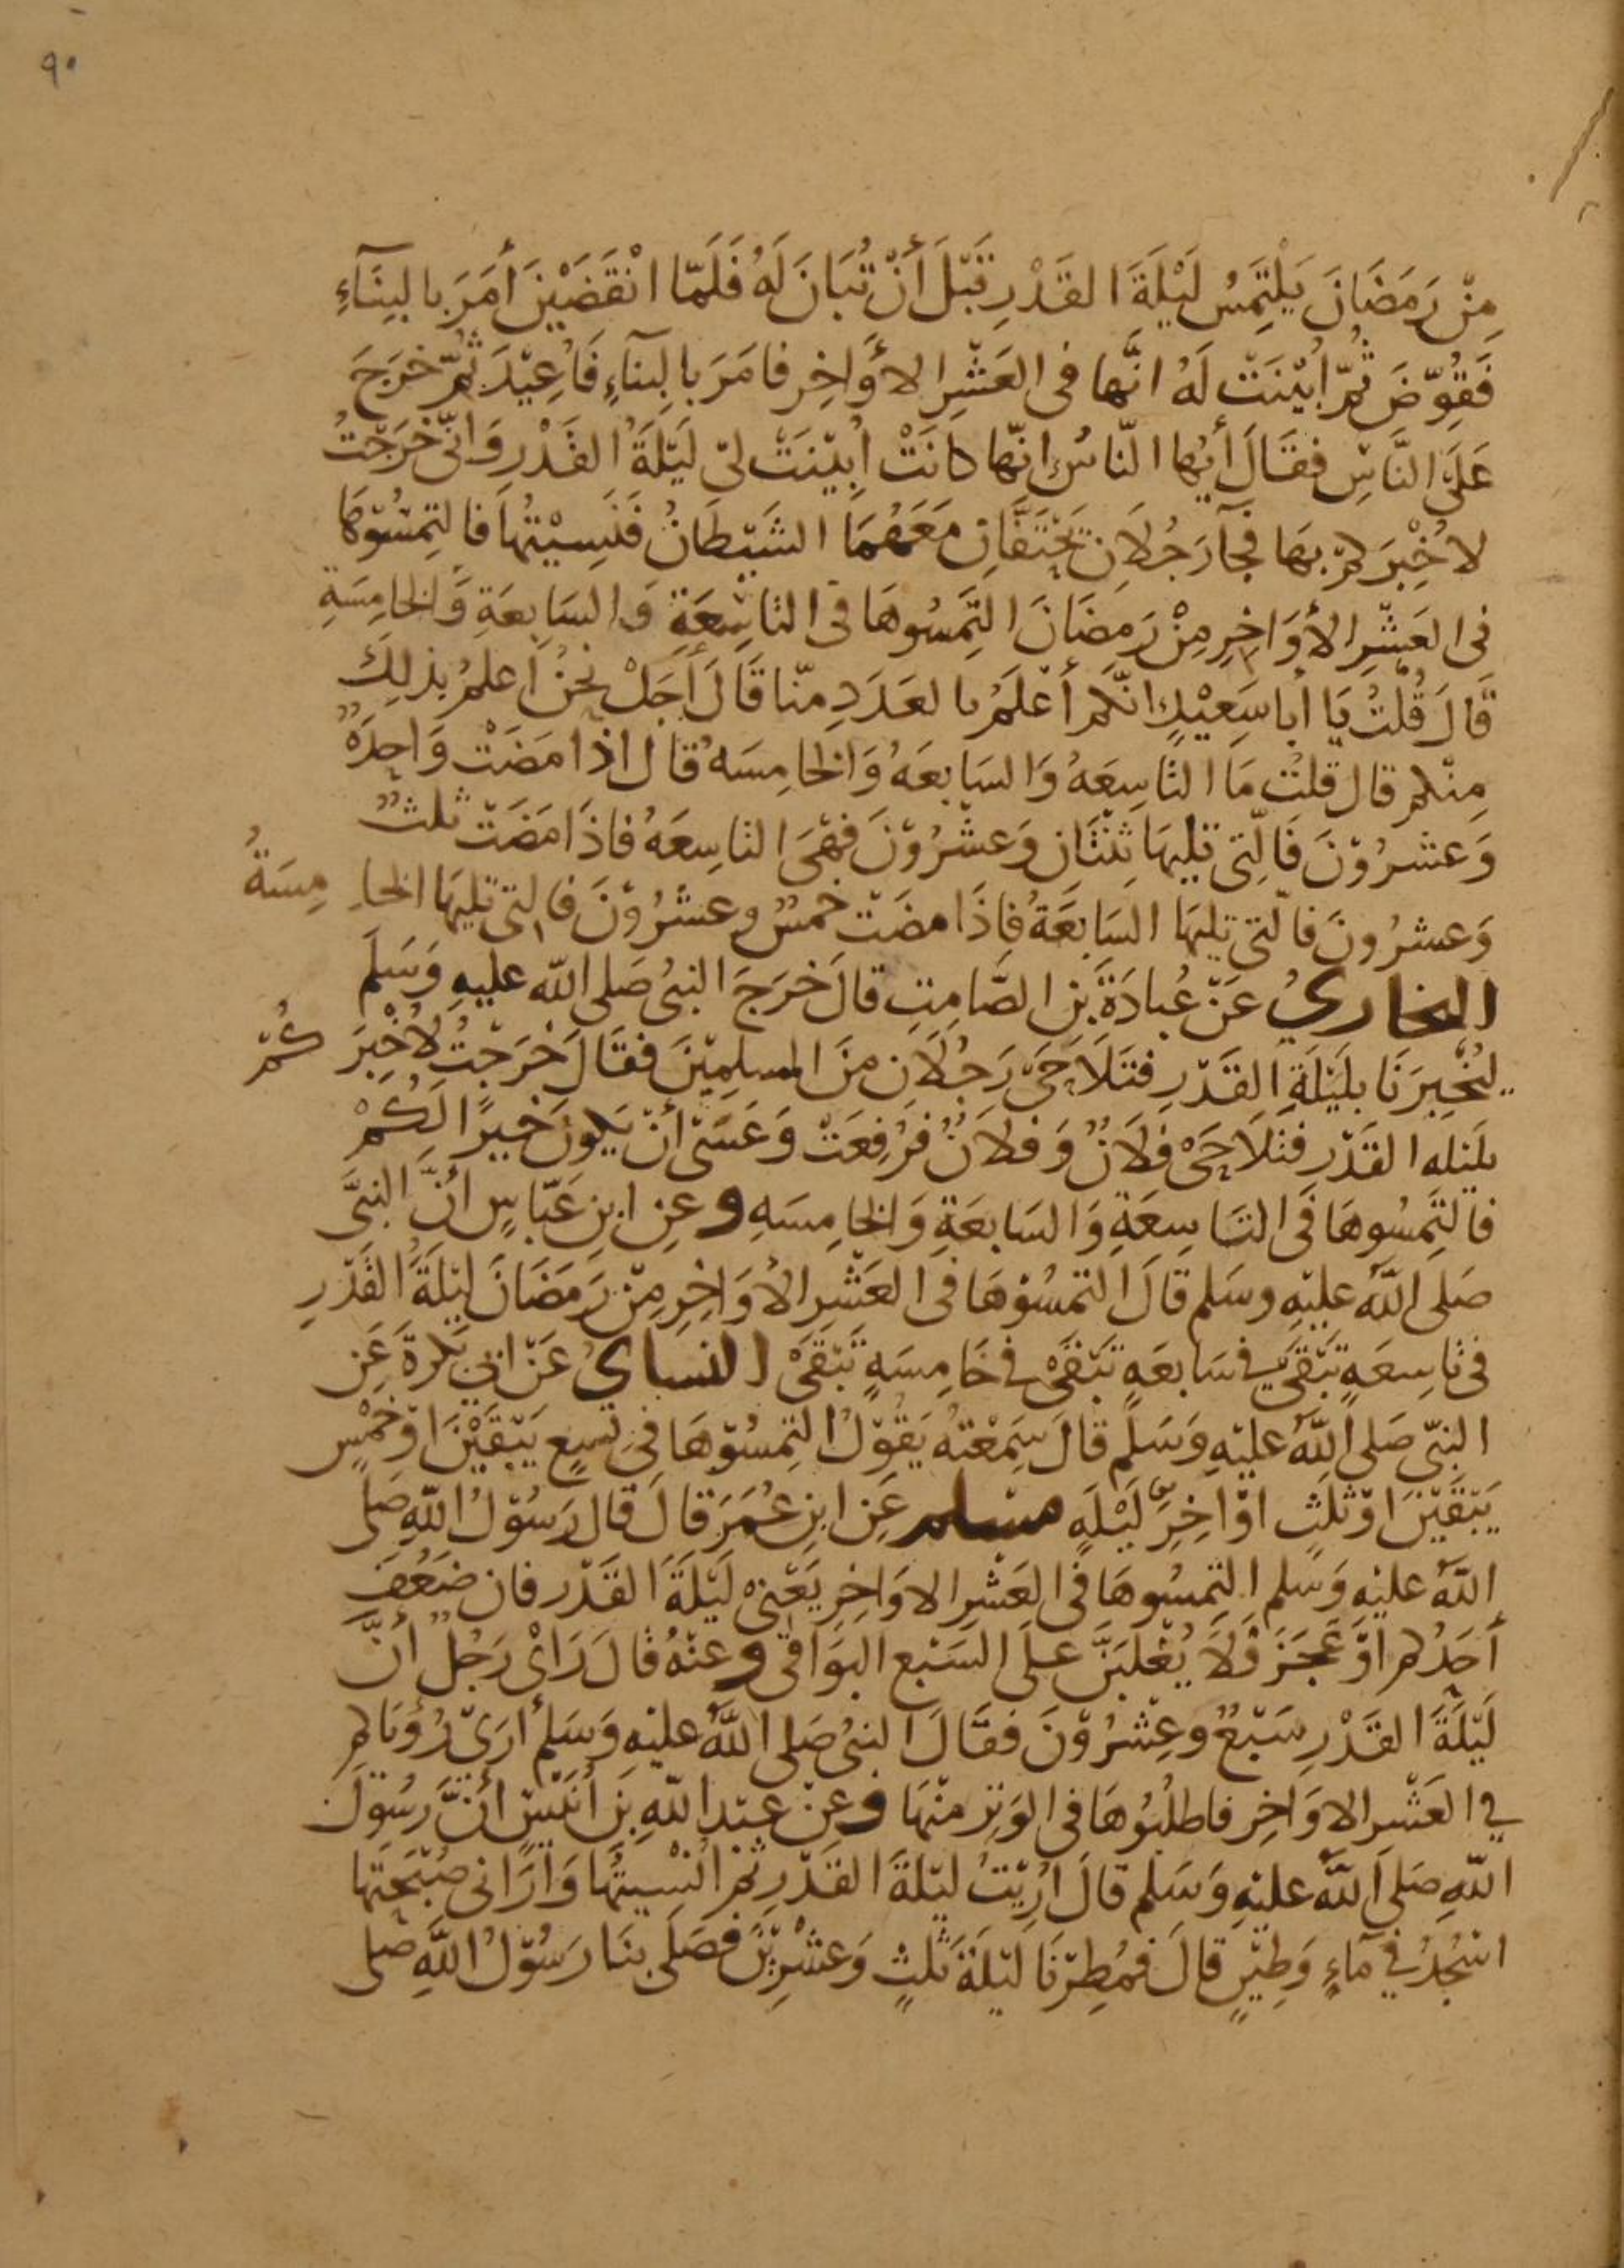 ٩٠
مِنْ رَمَضَانَ يَلْتَمِسُ لَيْلَةَ القَدْرِ قَبْلَ أَنْ تُبَانَ لَهُ فَلَمَّا انْقَضَيْنَ أَمَرَ بالبِنَآءِ
فَقُوِّضَ ثُمَّ أُبِيْنَتْ لَهُ انَّها فى العَشْرِ الأَوَاخِرِ فامَرَ بالبِنآءِ فَأُعِيْدَ ثُمَّ خَرَجَ
عَلَى النَّاسِ فقَالَ أَيُّها النّاسُ إنّها كانَتْ أُبِيْنَتْ لىْ لَيْلَةُ القَدْرِ وَانّى خَرَجْتُ
لاُخْبِرَكمْ بهَا فجآرَجُلَانِ يَحْتَقَّانِ مَعَهُمَا الشَيْطَانُ فَنَسِيْتُهَا فالتَمِسُوْهَا
فى العَشْرِ الأَوَاخِرِ مِنْ رَمَضَانَ التَمِسُوهَا فى التاسِعَةِ وَالسَابِعَةِ وَالخامِسَةِ
قَالَ قُلْتُ يَا أبا سَعِيْدٍ انّكمْ أعْلَمُ بالعَدَدِ مِنّا قَالَ أَجَلْ نحْنُ أعلمُ بذلِكَ
مِنْكم قال قلتُ مَا التاسِعَهُ وَالسَابِعَهُ وَالخامِسَهُ قال اذا مَضَتْ وَاحِدَهٌ
وَعشرُوْنَ فَالّتِى تليهَا ثِنْتَان وَعشْرُوْنَ فهْىَ التاسِعَهُ فاذَا مَضَتْ ثلثٌ
وَعشرُونَ فالّتى تليهَا السَابعَةُ فاذَا مضَتْ خمسٌ وعشْرُوْنَ فالتى تليهَا الخامِسَةُ
البخاريُ عَنْ عُبادَةَ بنِ الصَّامِتِ قالَ خرَجَ النبىُ صَلى الله عليهِ وَسَلّمَ
ليُخْبِرَنَا بلَيْلَةِ القَدْرِ فتَلَاحَىْ رَجُلَانِ مِنَ المسلِمِيْنَ فقَالَ خَرَجْتُ لاُخْبِرَكُمْ
بلَيْلهِ القَدْرِ فتَلَاحَىْ فلَانٌ وَفلَانٌ فرُفِعَتْ وَعَسَىْ أنْ يَكونَ خيرًا لَكُمْ
فالتَمِسُوهَا فى التَاسِعَةِ وَالسَابعَةِ وَالخامِسَهِ وعنِ ابنِ عَبّاسٍ انَّ النبىَّ
صَلى اللهُ عليْهِ وسَلم قالَ التمسُوْهَا فى العَشْرِ الأوَاخِرِ مِنْ رَمَضَانَ ليْلَةُ القَدْرِ
فى تاسِعَهٍ تَبْقَىْ فى سَابعَهٍ تَبْقَىْ فى خَامِسَهٍ تَبْقَىْ النساىُ عَنْ ابى بَكرَةَ عَن
النبىّ صَلى اللهُ عليْهِ وَسَلم قالَ سَمِعْتُهُ يَقُوْلُ التمِسُوْهَا فى تسعٍ يَبْقَيْنَ اوْ خمْسٍ
يَبْقَيْنَ اوْثَلثٍ اوْ اخِرِ لَيْلَهٍ مسلم عَن ابنِ عُمَرَ قالَ قال رَسُوْلُ اللهِ صَلى
اللهُ عليْهِ وَسَلم التمِسُوهَا فى العَشْرِ الاوَاخِرِ يَعْنىْ لَيْلَةَ القَدْر فان ضَعُفَ
أحَدُكم اوْ عَجَزَ فَلَا يُغْلَبَنَّ عَلى السَبْع البَوَاقى وعنْهُ قالَ رَاىْ رَجُلٌ أنَّ
لَيْلَةَ القَدْرِ سَبْعٌ وعِشْرُوْنَ فقَالَ النبىُ صَلى اللهُ عليْهِ وَسَلم أرَىْ رُؤيَاكم
في العَشْرِ الاوَاخِر فاطلبُوْهَا فى الوَترِ منْهَا وعنْ عبْدِ اللهِ بْنِ أُنَيْسٍ أنَّ رسُوْلَ
اللهِ صَلى اللهُ عليْهِ وَسَلم قالَ أُرِيْتُ ليْلَةَ القَدْرِ ثمَّ انْسِيْتُهَا وَارَانى صُبْحَتَها
اسْجُدُ في مَآءٍ وَطِيْنٍ قالَ فمُطِرْنَا لَيْلَةَ ثَلثٍ وَعشْرِيْنَ فصَلى بنَا رَسُوْلُ اللهِ صَلى